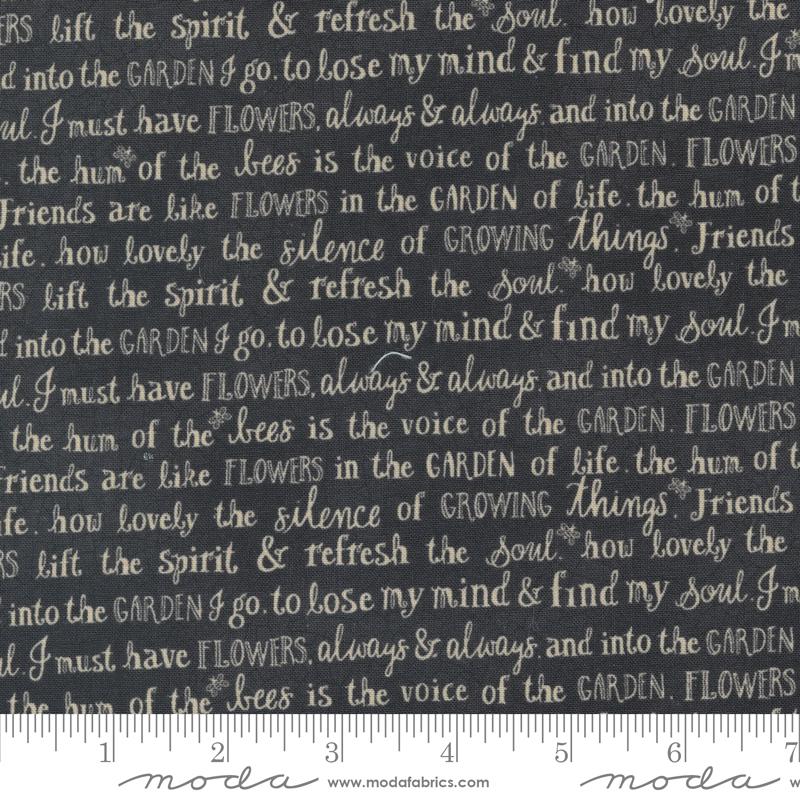 ERS lift the spirit & refresh the soul. how lovely the
d into the GARDEN I go. to lose my mind & find my soul. I m
ul. I must have FLOWERS, always & always. and into the GARDEN
. the hum of the bees is the voice of the GARDEN. FLOWERS
Friends are like FLOWERS in the GARDEN of life. the hum of t
life. how lovely the silence of GROWING things. Friends
RS lift the spirit & refresh the soul. how lovely the
d into the GARDEN I go. to lose my mind & find my soul. I m
ul. I must have FLOWERS, always & always. and into the GARDEN
the hum of the bees is the voice of the GARDEN. FLOWERS
Friends are like FLOWERS in the GARDEN of life. the hum of t
ife. how lovely the silence of GROWING things. Friends
ERS lift the spirit & refresh the soul. how lovely the
into the GARDEN I go. to lose my mind & find my soul. I m
ul. I must have FLOWERS, always & always. and into the GARDEN
the hum of the bees is the voice of the GARDEN. FLOWERS
1 2 3 4 5 6 7
moda www.modafabrics.com moda w